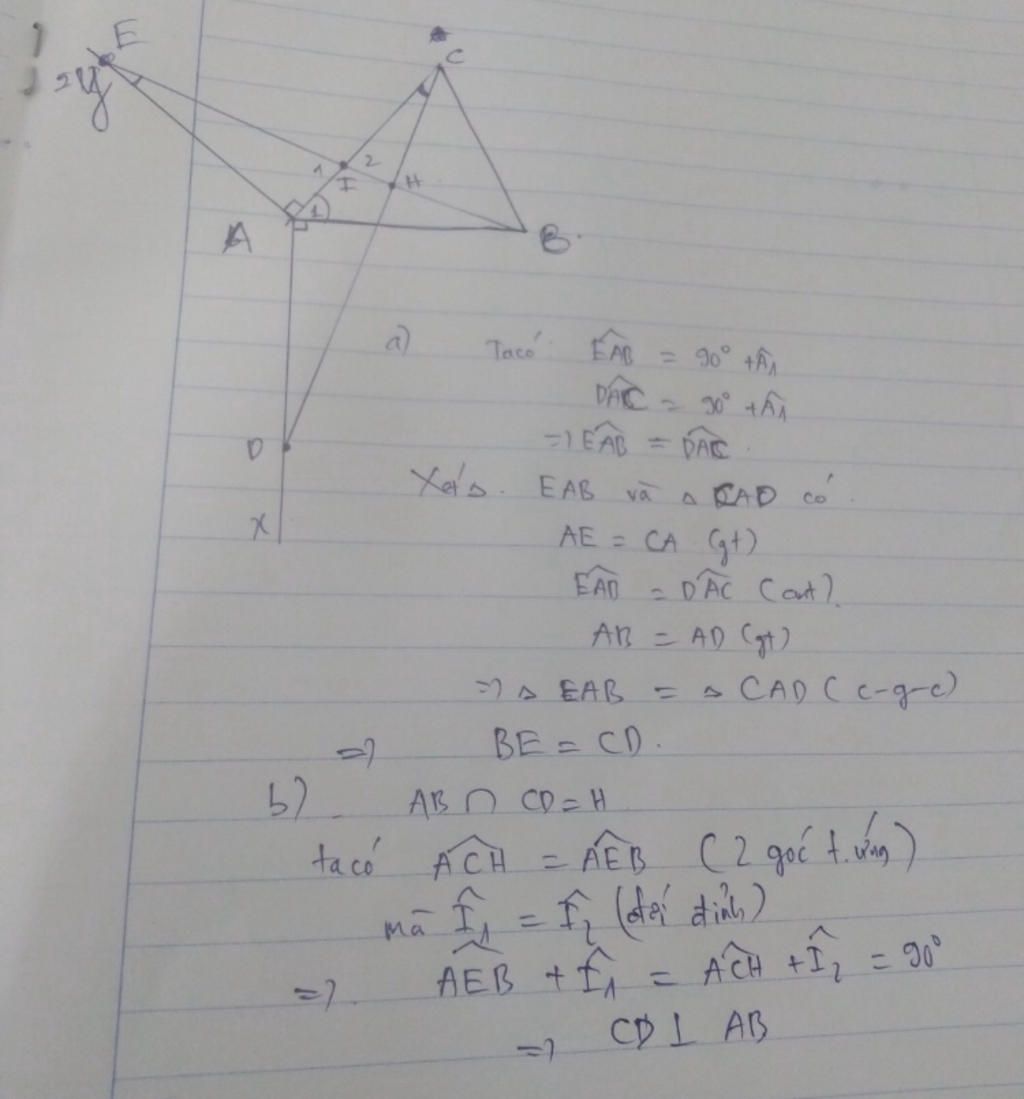 E
y
C
1
2
I
H
A
1
B
D
x
a) Ta có: \widehat{EAB} = 90° + Â₁
\widehat{DAC} = 90° + Â₁
=> \widehat{EAB} = \widehat{DAC}.
Xét △ EAB và △ CAD có
AE = CA (gt)
\widehat{EAB} = \widehat{DAC} (cmt).
AB = AD (gt)
=> △ EAB = △ CAD (c-g-c)
=> BE = CD.
b) AB ∩ CD = H
ta có \widehat{ACH} = \widehat{AEB} (2 góc t.ứng)
mà Î₁ = Î₂ (đối đỉnh)
=> \widehat{AEB} + Î₁ = \widehat{ACH} + Î₂ = 90°
=> CD ⊥ AB